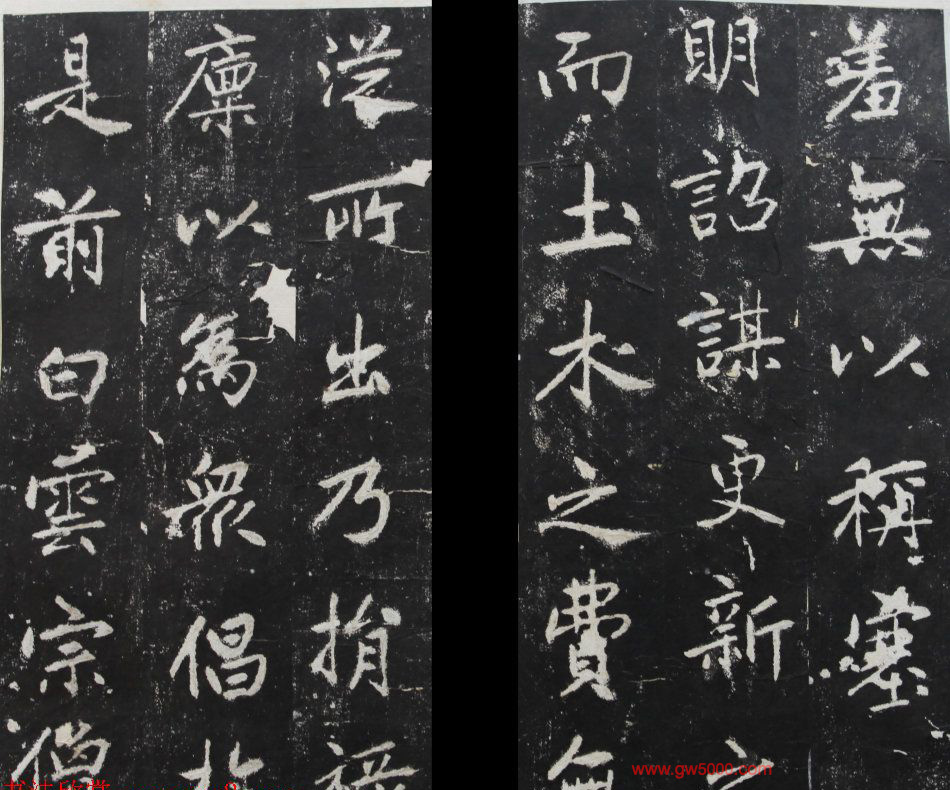 羞無以稱塞
明詔謀更新
而土木之費無
從所出乃捐
廩以為眾倡於
是前白雲宗僧
www.gw5000.com